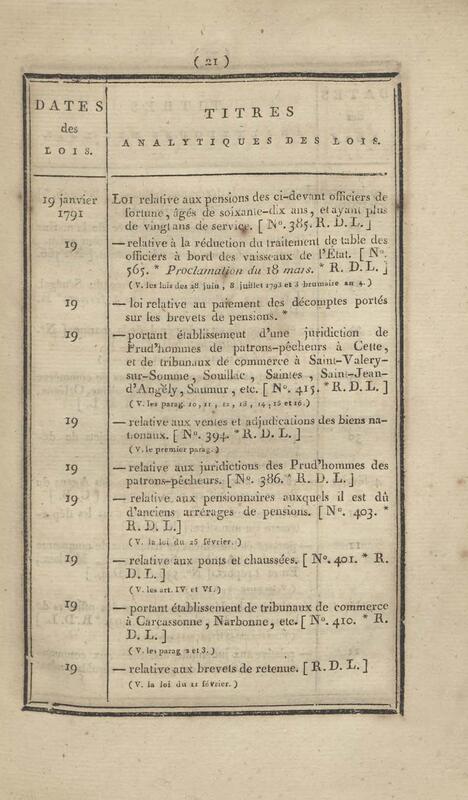 ( 21 )
DATES
des
LOIS.
TITRES
ANALYTIQUES DES LOIS.
19 janvier
1791
LOI relative aux pensions des ci-devant officiers de
fortune, âgés de soixante-dix ans, et ayant plus
de vingt ans de service. [ N°. 385. R. D. L. ]
19 — relative à la réduction du traitement de table des
officiers à bord des vaisseaux de l'État. [ N°.
565. * Proclamation du 18 mars. * R. D. L. ]
(V. les lois des 28 juin, 8 juillet 1793 et 3 brumaire an 4. )
19 — loi relative au paiement des décomptes portés
sur les brevets de pensions. *
19 — portant établissement d'une juridiction de
Prud'hommes de patrons-pêcheurs à Cette,
et de tribunaux de commerce à Saint-Valery-
sur-Somme, Souillac, Saintes, Saint-Jean-
d'Angély, Saumur, etc. [ N°. 415. * R. D. L. ]
( V. les parag. 10, 11, 12, 13, 14, 15 et 16. )
19 — relative aux ventes et adjudications des biens na-
tionaux. [ N°. 394. * R. D. L. ]
( V. le premier parag. )
19 — relative aux juridictions des Prud'hommes des
patrons-pêcheurs. [ N°. 386. * R. D. L. ]
19 — relative aux pensionnaires auxquels il est dû
d'anciens arrérages de pensions. [ N°. 403. *
R. D. L.]
( V. la loi du 25 février. )
19 — relative aux ponts et chaussées. [ N°. 401. * R.
D. L. ]
( V. les art. IV et VI. )
19 — portant établissement de tribunaux de commerce
à Carcassonne, Narbonne, etc. [ N°. 410. * R.
D. L. ]
( V. les parag 2 et 3. )
19 — relative aux brevets de retenue. [ R. D. L. ]
( V. la loi du 11 février. )